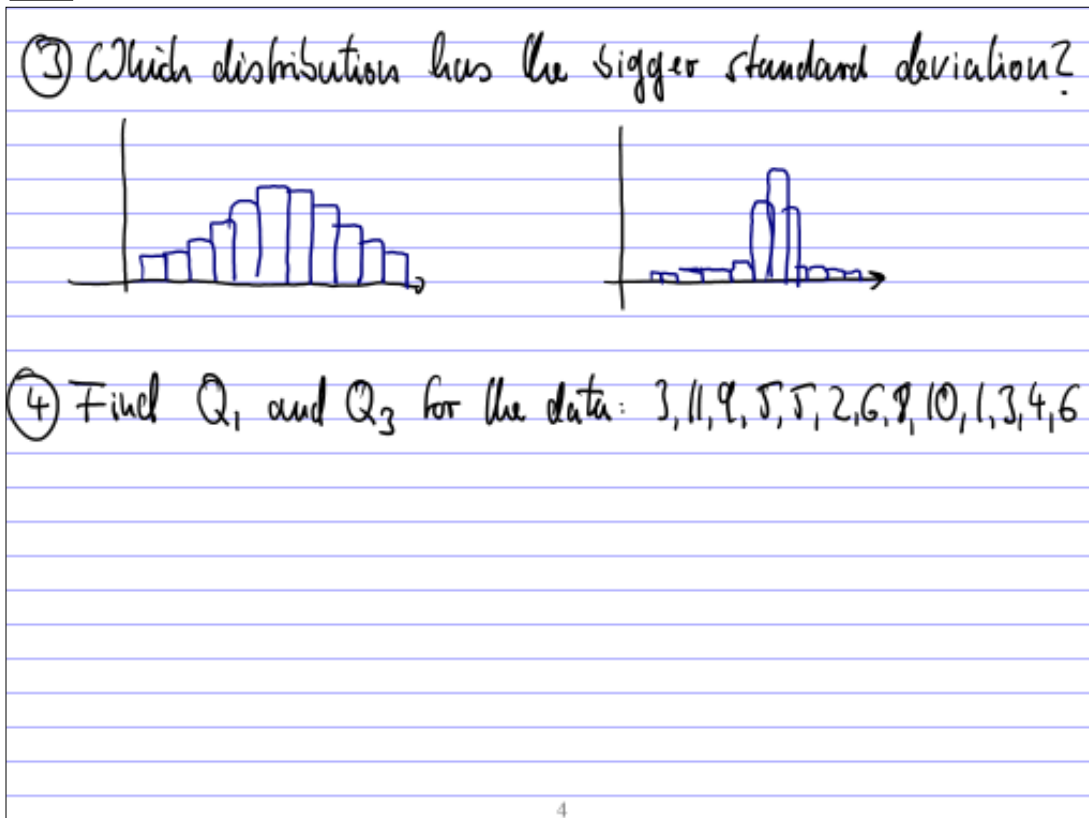 ③ Which distribution has the bigger standard deviation?
④ Find Q₁ and Q₃ for the data: 3, 11, 9, 5, 5, 2, 6, 8, 10, 1, 3, 4, 6
4